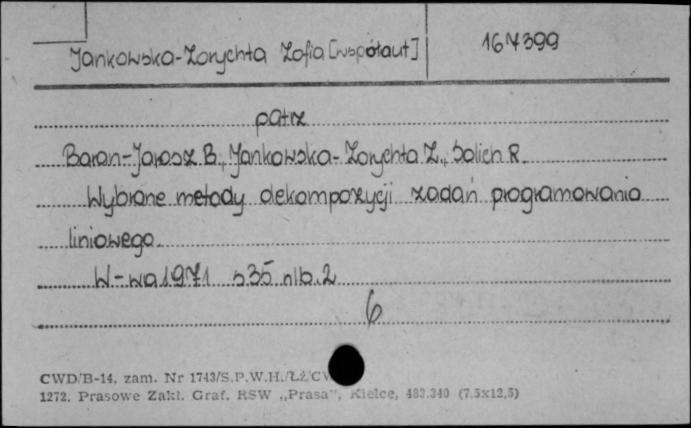 Jankowska-Zorychta Zofia [współaut] 167399
patrz
Baran-Jarosz B., Jankowska-Zorychta Z., Salich R.
Wybrane metody dekompozycji zadań programowania
liniowego
W-wa 1971 s 35 nlb. 2
6
CWD/B-14, zam. Nr 1743/S.P.W.H./ŁŻ/CW
1272. Prasowe Zakł. Graf. RSW „Prasa”, Kielce, 483.340 (7,5x12,5)